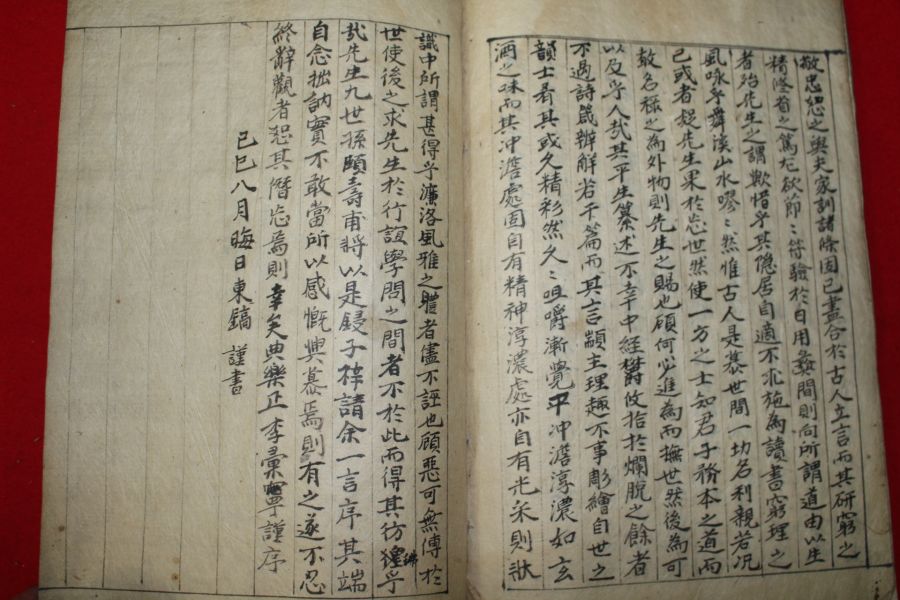 敬忠恕之與夫家訓諸條固已盡合於古人立言而其研窮之
精修省之篤尤欲節〻符驗於日用彛間則向所謂道由以生
者殆先生之謂歟惜乎其隱居自適不求施爲讀書窮理之
風咏乎舞溪山水嘐〻然惟古人是慕世間一切名利親若況
已或者疑先生果於忘世然使一方之士知君子務本之道而
敎名祿之爲外物則先生之賜也顧何必進爲而撫世然後爲可
以及乎人哉其平生纂述不幸中經欝攸拾於爛脫之餘者
不過詩箴辨解若干篇而其言顓主理趣不事彫繪自世之
韻士看其或欠精彩然久〻咀嚼漸覺平冲澹淳濃如玄
酒之味而其冲澹處固自有精神淳濃處亦自有光采則狀
識中所謂甚得乎濂洛風雅之體者儘不誣也顧惡可無傳於
世使後之求先生於行誼學問之間者不於此而得其彷彿乎
哉先生九世孫頤壽甫將以是鋟子梓請余一言序其端
自念拙訥實不敢當所以感慨興慕焉則有之遂不忍
終辭觀者恕其僭忘焉則幸矣典樂正李彙寧謹序
己巳八月晦日東鎬 謹書